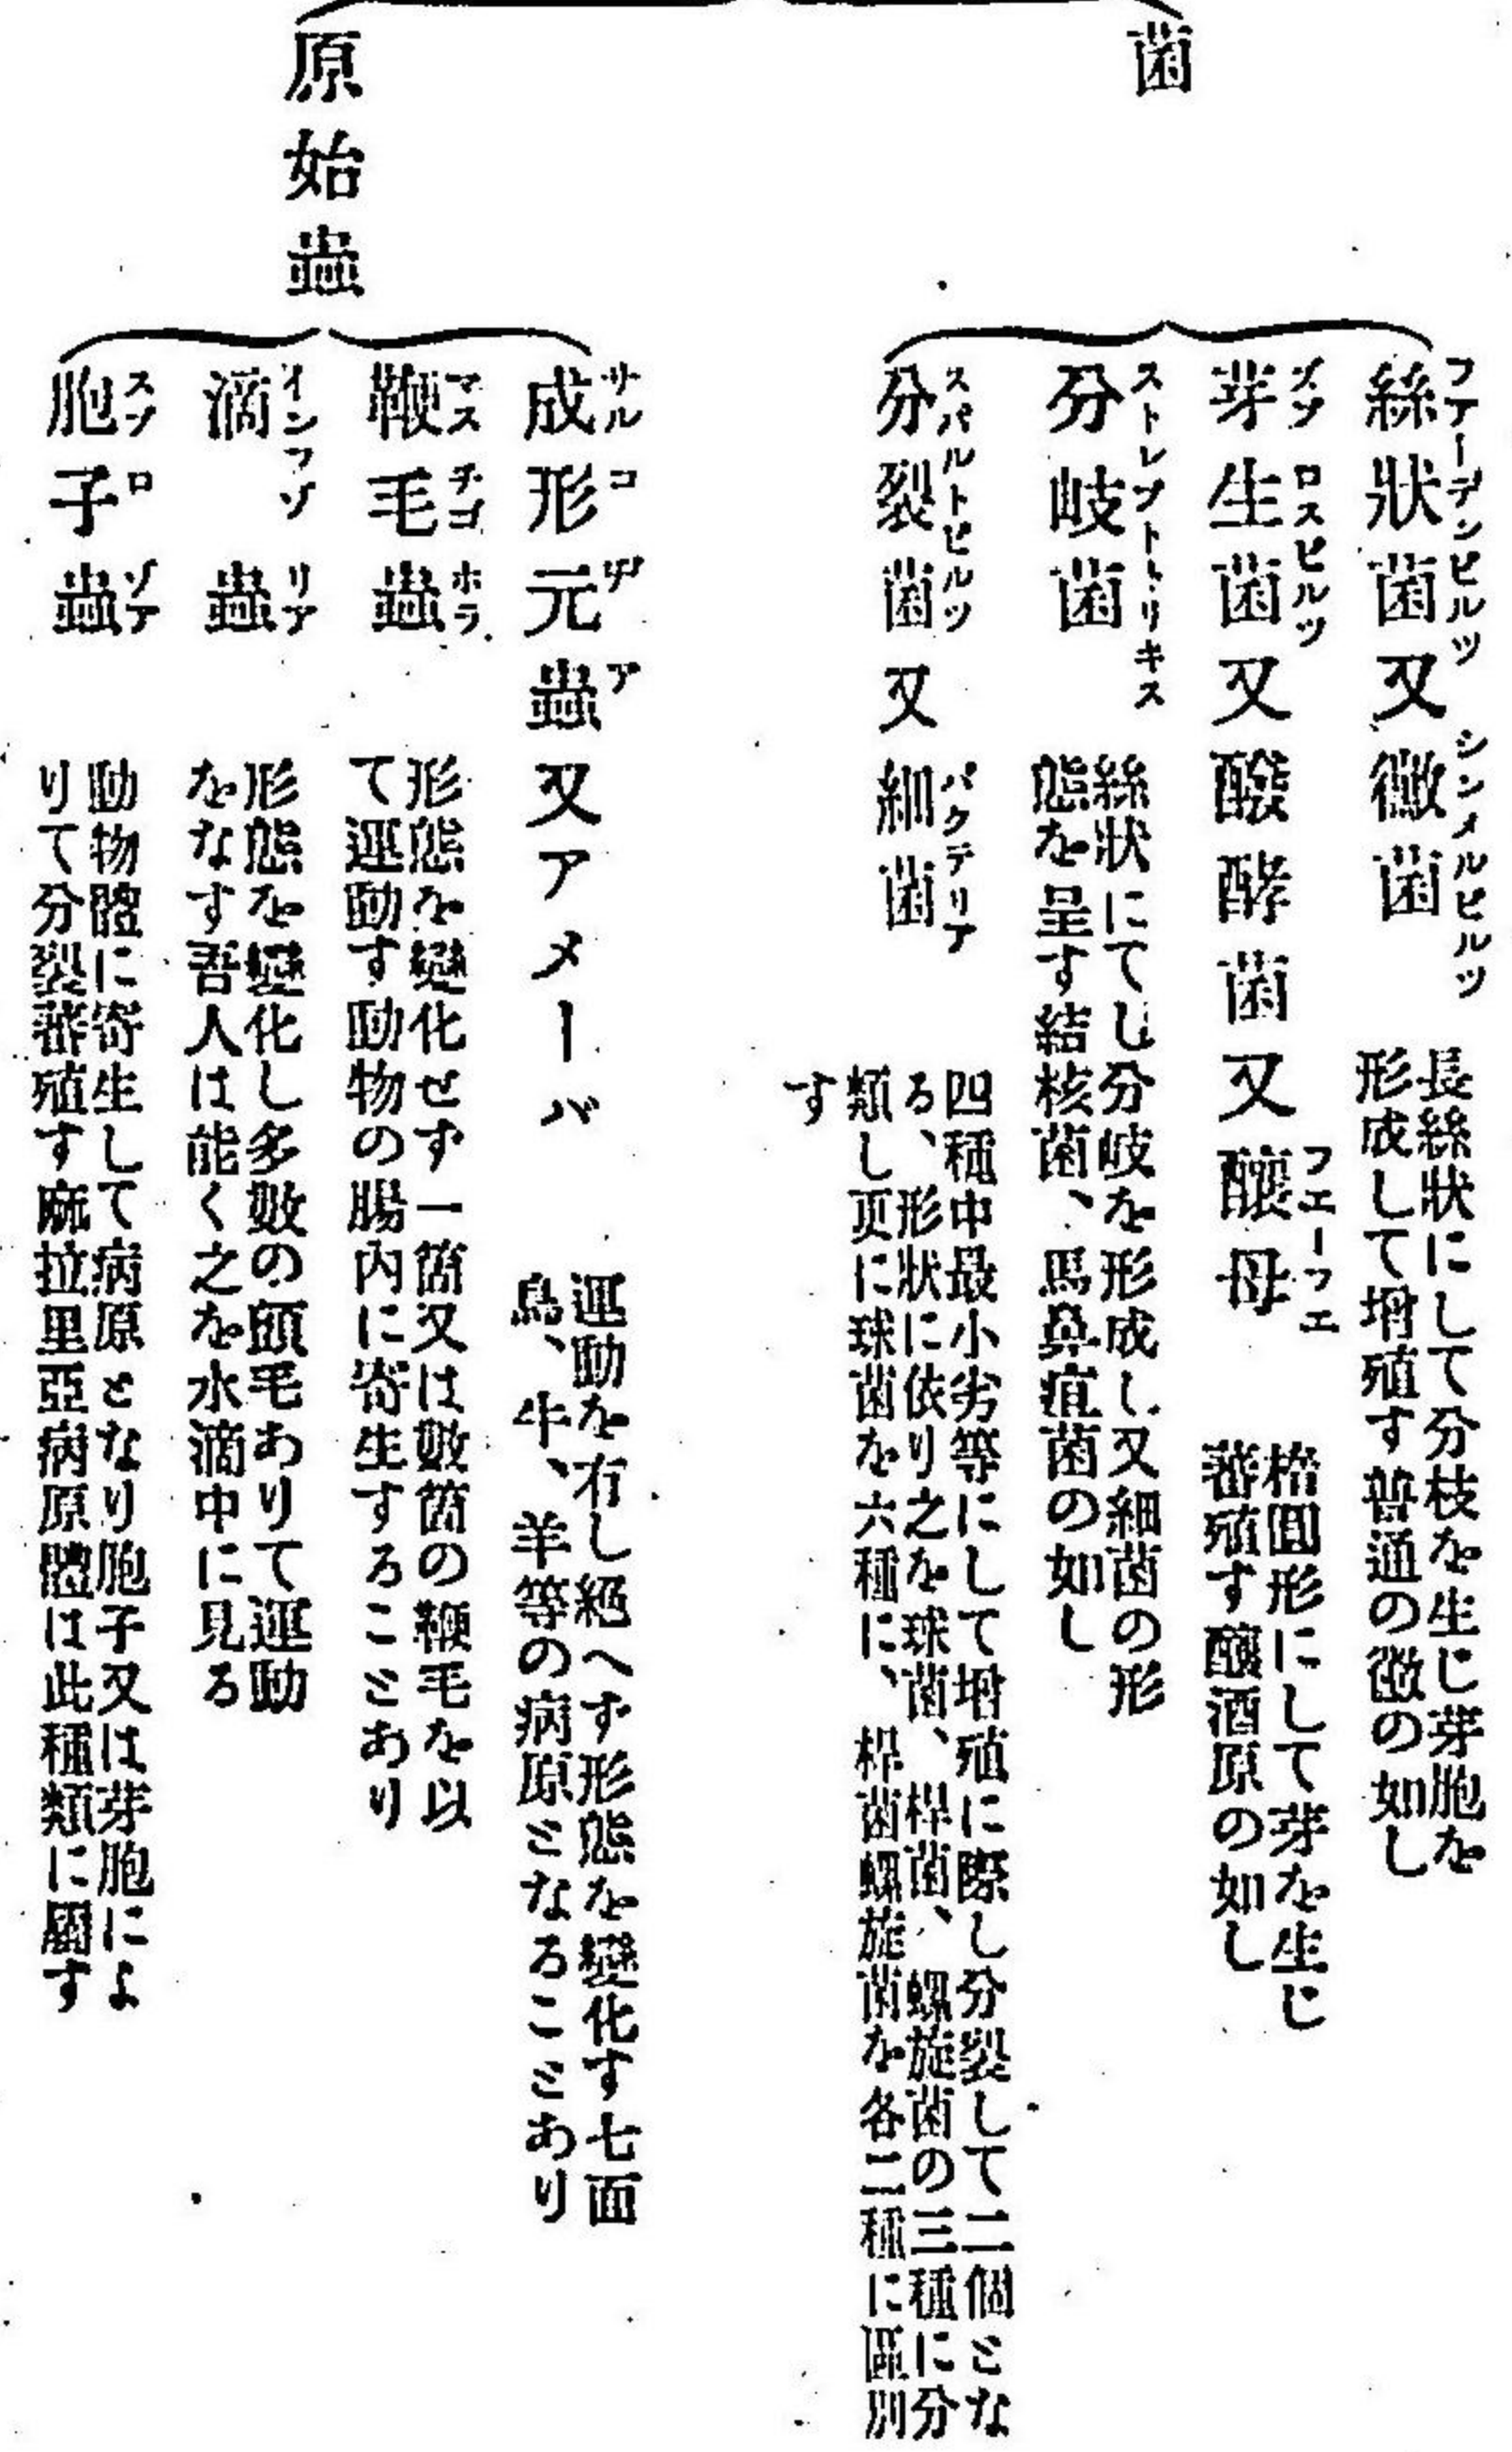 菌
絲狀菌又黴菌
フアーデンピルツ
シンメルピルツ
長絲狀にして分枝を生じ芽胞を
形成して増殖す普通の黴の如し
芽生菌又醱酵菌又釀母
ロスピルツ
フエーフエ
楕圓形にして芽を生じ
蕃殖す釀酒原の如し
分岐菌
ストレプトトリキス
絲狀にてし分岐を形成し又細菌の形
態を呈す結核菌、馬鼻疽菌の如し
分裂菌又細菌
スパルトピルツ
バクテリア
四種中最小劣等にして増殖に際し分裂して二個とな
る、形狀に依り之を球菌、桿菌、螺旋菌の三種に分
類し更に球菌を六種に、桿菌螺旋菌を各二種に區別
す
原始蟲
成形元蟲又アメーバ
サルコヂア
運動を有し絕へず形態を變化す七面
鳥、牛、羊等の病原となることあり
鞭毛蟲
マスチゴホラ
形態を變化せず一箇又は數箇の鞭毛を以
て運動す動物の腸內に寄生することあり
滴蟲
インフゾリア
形態を變化し多數の顫毛ありて運動
をなす吾人は能く之を水滴中に見る
胞子蟲
スソロゾア
動物體に寄生して病原となり胞子又は芽胞によ
りて分裂蕃殖す麻拉里亞病原體は此種類に屬す